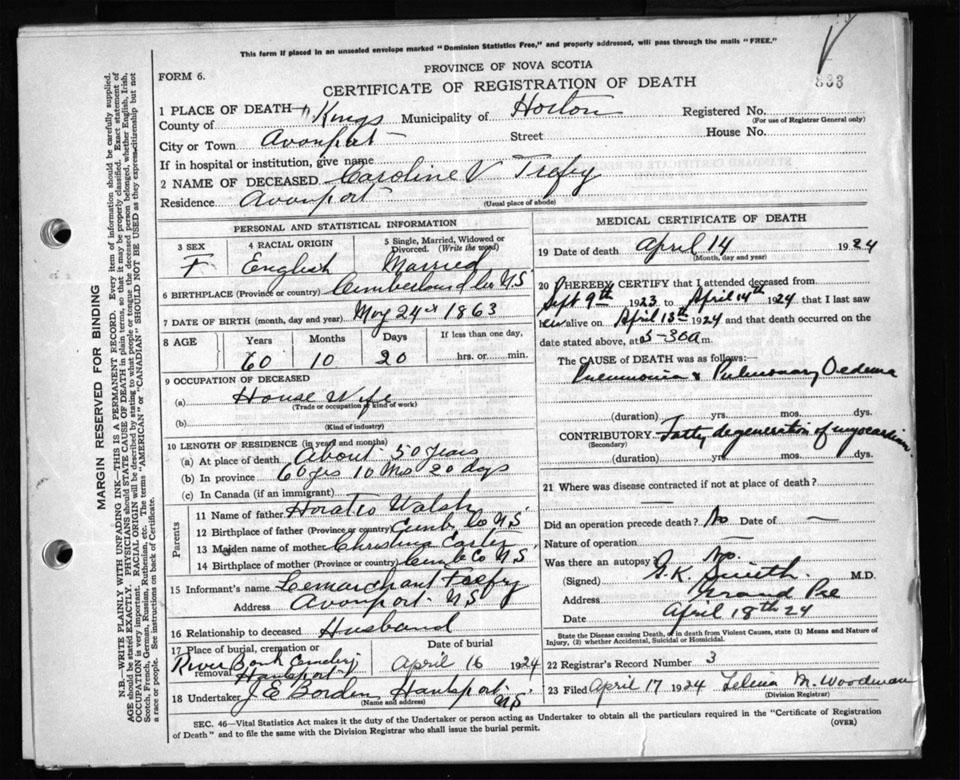 This form if placed in an unsealed envelope marked "Dominion Statistics Free," and properly addressed, will pass through the mails "FREE."
PROVINCE OF NOVA SCOTIA
FORM 6.
CERTIFICATE OF REGISTRATION OF DEATH
1 PLACE OF DEATH—
County of Kings Municipality of Horton Registered No.
(For use of Registrar General only)
City or Town Avonport Street House No.
If in hospital or institution, give name
2 NAME OF DECEASED Caroline V Trefry
Residence Avonport
(Usual place of abode)
PERSONAL AND STATISTICAL INFORMATION
3 SEX 4 RACIAL ORIGIN 5 Single, Married, Widowed or Divorced. (Write the word)
F English Married
6 BIRTHPLACE (Province or country) Cumberland Co NS
7 DATE OF BIRTH (month, day and year) May 24th 1863
8 AGE Years Months Days If less than one day,
60 10 20 hrs. or min.
9 OCCUPATION OF DECEASED
(a) House Wife
(Trade or occupation or kind of work)
(b)
(Kind of industry)
10 LENGTH OF RESIDENCE (in years and months)
(a) At place of death About 50 years
(b) In province 60 yrs 10 Mo 20 days
(c) In Canada (if an immigrant)
Parents
11 Name of father Horatio Walsh
12 Birthplace of father (Province or country) Cumb. Co NS
13 Maiden name of mother Christina
14 Birthplace of mother (Province or country) Cumb Co NS
15 Informant's name Lemarchant Trefry
Address Avonport NS
16 Relationship to deceased Husband
17 Place of burial, cremation or removal Date of burial
River Bank Cemetery Hantsport April 16 1924
18 Undertaker J E Borden Hantsport NS
(Name and address)
MEDICAL CERTIFICATE OF DEATH
19 Date of death April 14 1924
(Month, day and year)
20 I HEREBY CERTIFY that I attended deceased from
Sept 9th 1923 to April 14th 1924 that I last saw
her alive on April 13th 1924 and that death occurred on the
date stated above, at 5-30 a m.
The CAUSE of DEATH was as follows:
Pneumonia & Pulmonary Oedema
(duration) yrs. mos. dys.
CONTRIBUTORY Fatty degeneration of myocardium
(Secondary)
(duration) yrs. mos. dys.
21 Where was disease contracted if not at place of death?
—
Did an operation precede death? No Date of —
Nature of operation —
Was there an autopsy? No.
(Signed) Smith M.D.
Address Grand Pre
Date April 18th 24
State the Disease causing Death, or in death from Violent Causes, state (1) Means and Nature of
Injury, (2) whether Accidental, Suicidal or Homicidal.
22 Registrar's Record Number 3
23 Filed April 17 1924 M. Woodman
(Division Registrar)
SEC. 46—Vital Statistics Act makes it the duty of the Undertaker or person acting as Undertaker to obtain all the particulars required in the "Certificate of Registration
of Death" and to file the same with the Division Registrar who shall issue the burial permit.
(OVER)
MARGIN RESERVED FOR BINDING
N.B.—WRITE PLAINLY WITH UNFADING INK—THIS IS A PERMANENT RECORD. Every item of information should be carefully supplied.
AGE should be stated EXACTLY. PHYSICIANS should STATE CAUSE OF DEATH in plain terms, so that it may be properly classified. Exact statement of
OCCUPATION is very important. RACIAL ORIGIN will be described by stating to what people or tongue the deceased person belonged, whether English, Irish,
Scotch, French, German, Russian, Ruthenian, etc. The terms "AMERICAN" or "CANADIAN" SHOULD NOT BE USED as they express citizenship but not
a race or people. See instructions on back of Certificate.